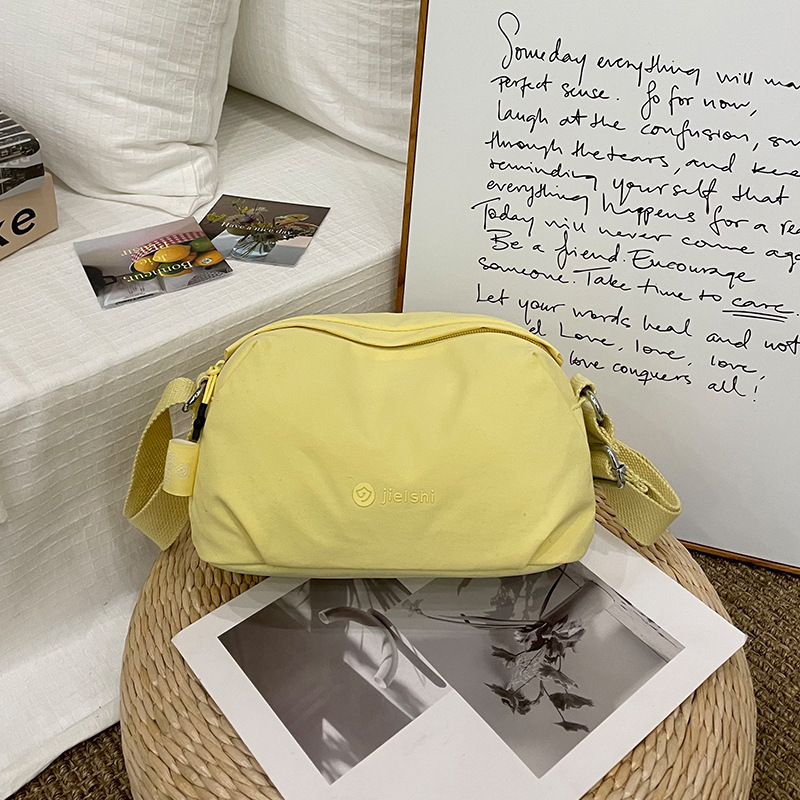 Someday everything will ma
perfect sense. So for now,
laugh at the confusion, sm
through the tears, and kee
reminding yourself that
everything happens for a rea
Today will never come aga
Be a friend. Encourage
someone. Take time to care.
Let your words heal and not
Love, love, love,
love conquers all!
ke
Bonheur,
Plaisir
Joie
Bonheur.
Have a
jielshi